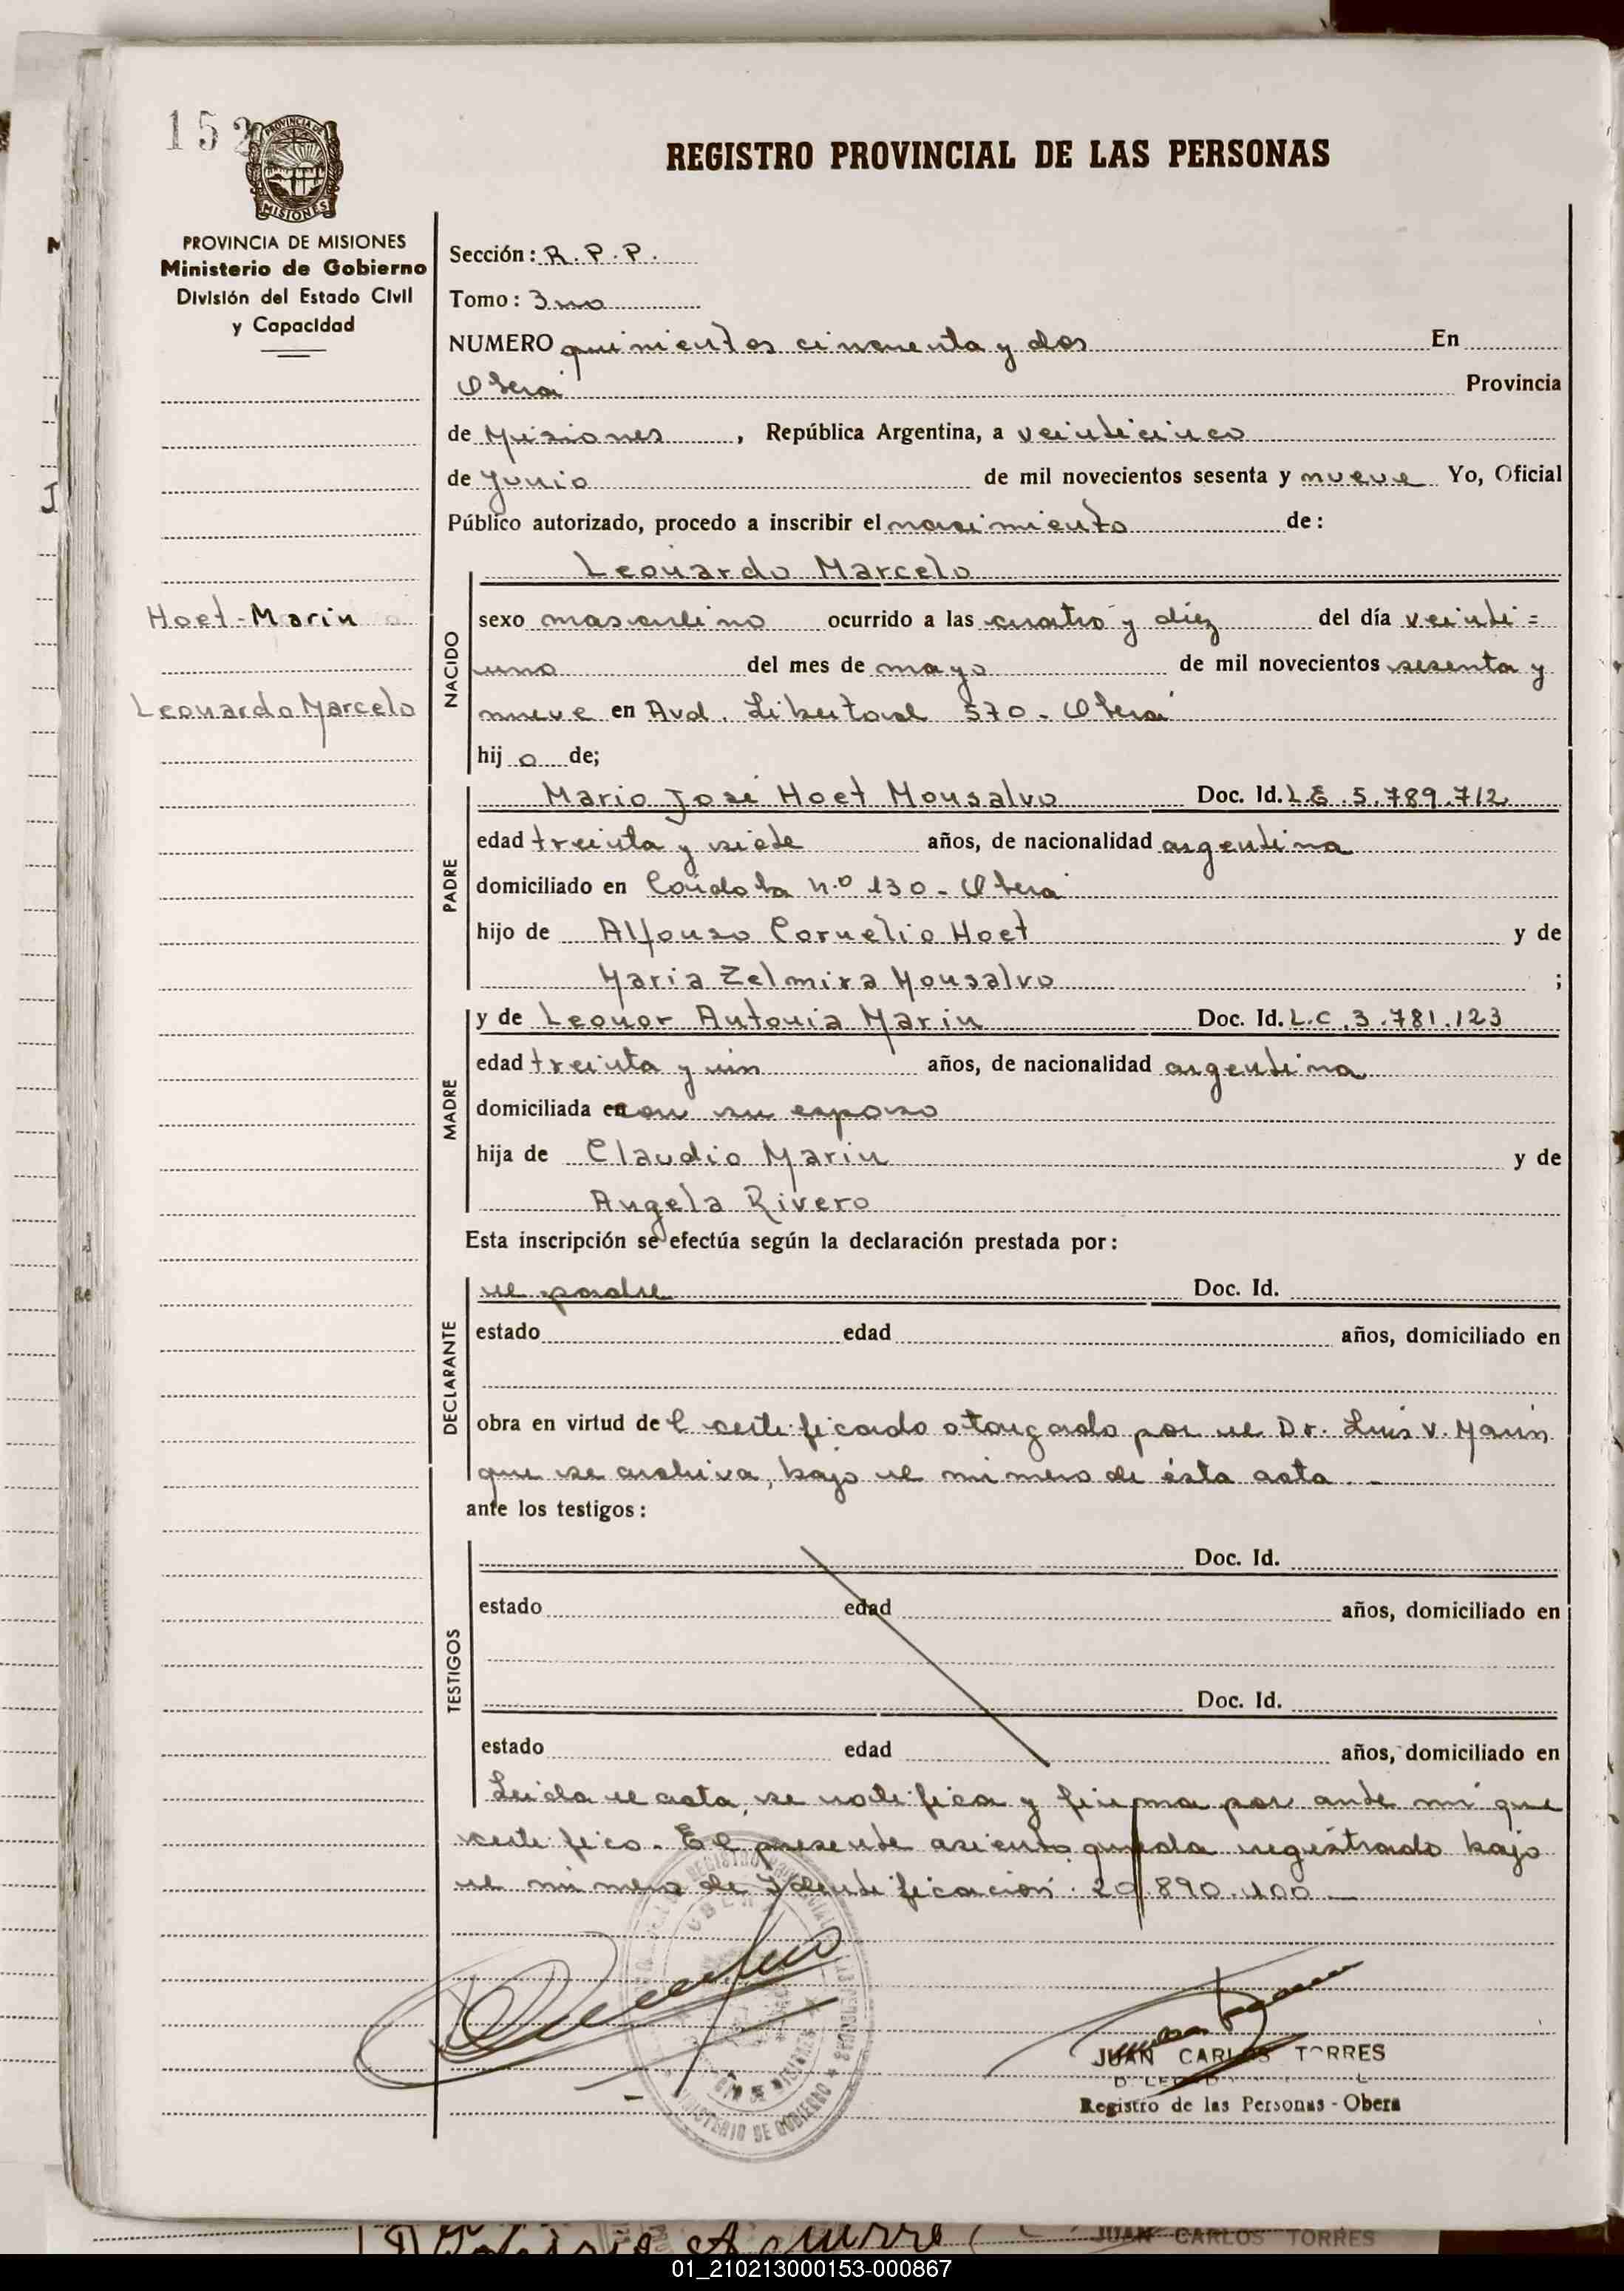 152
PROVINCIA DE
MISIONES
REGISTRO PROVINCIAL DE LAS PERSONAS
PROVINCIA DE MISIONES
Ministerio de Gobierno
División del Estado Civil
y Capacidad
Hoet-Marin
Leonardo Marcelo
Sección: R.P.P.
Tomo: 3
NUMERO quinientos cincuenta y dos En
Oberá Provincia
de Misiones, República Argentina, a veinticinco
de Junio de mil novecientos sesenta y nueve Yo, Oficial
Público autorizado, procedo a inscribir el nacimiento de:
Leonardo Marcelo
NACIDO
sexo masculino ocurrido a las cuatro y diéz del día veinti=
uno del mes de mayo de mil novecientos sesenta y
nueve en Avd. Libertad 570 - Oberá
hijo de;
PADRE
Mario José Hoet Monsalvo Doc. Id. L.E. 5.789.712
edad treinta y siete años, de nacionalidad argentina
domiciliado en Córdoba n.º 130 - Oberá
hijo de Alfonso Cornelio Hoet y de
Maria Zelmira Monsalvo ;
MADRE
y de Leonor Antonia Marin Doc. Id. L.C. 3.781.123
edad treinta y un años, de nacionalidad argentina
domiciliada en con su esposo
hija de Claudio Marin y de
Angela Rivero
Esta inscripción se efectúa según la declaración prestada por:
DECLARANTE
el padre Doc. Id.
estado edad años, domiciliado en
obra en virtud del certificado otorgado por el Dr. Luis V. Marin
que se archiva, bajo el número de ésta acta.-
ante los testigos:
TESTIGOS
Doc. Id.
estado edad años, domiciliado en
Doc. Id.
estado edad años, domiciliado en
Leída el acta, se notifica y firma por ante mí que
certifico. El presente asiento queda registrado bajo
el número de Identificación 20.890.400-
MINISTERIO DE GOBIERNO
JUAN CARLOS TORRES
Registro de las Personas - Obera
JUAN CARLOS TORRES
01_210213000153-000867